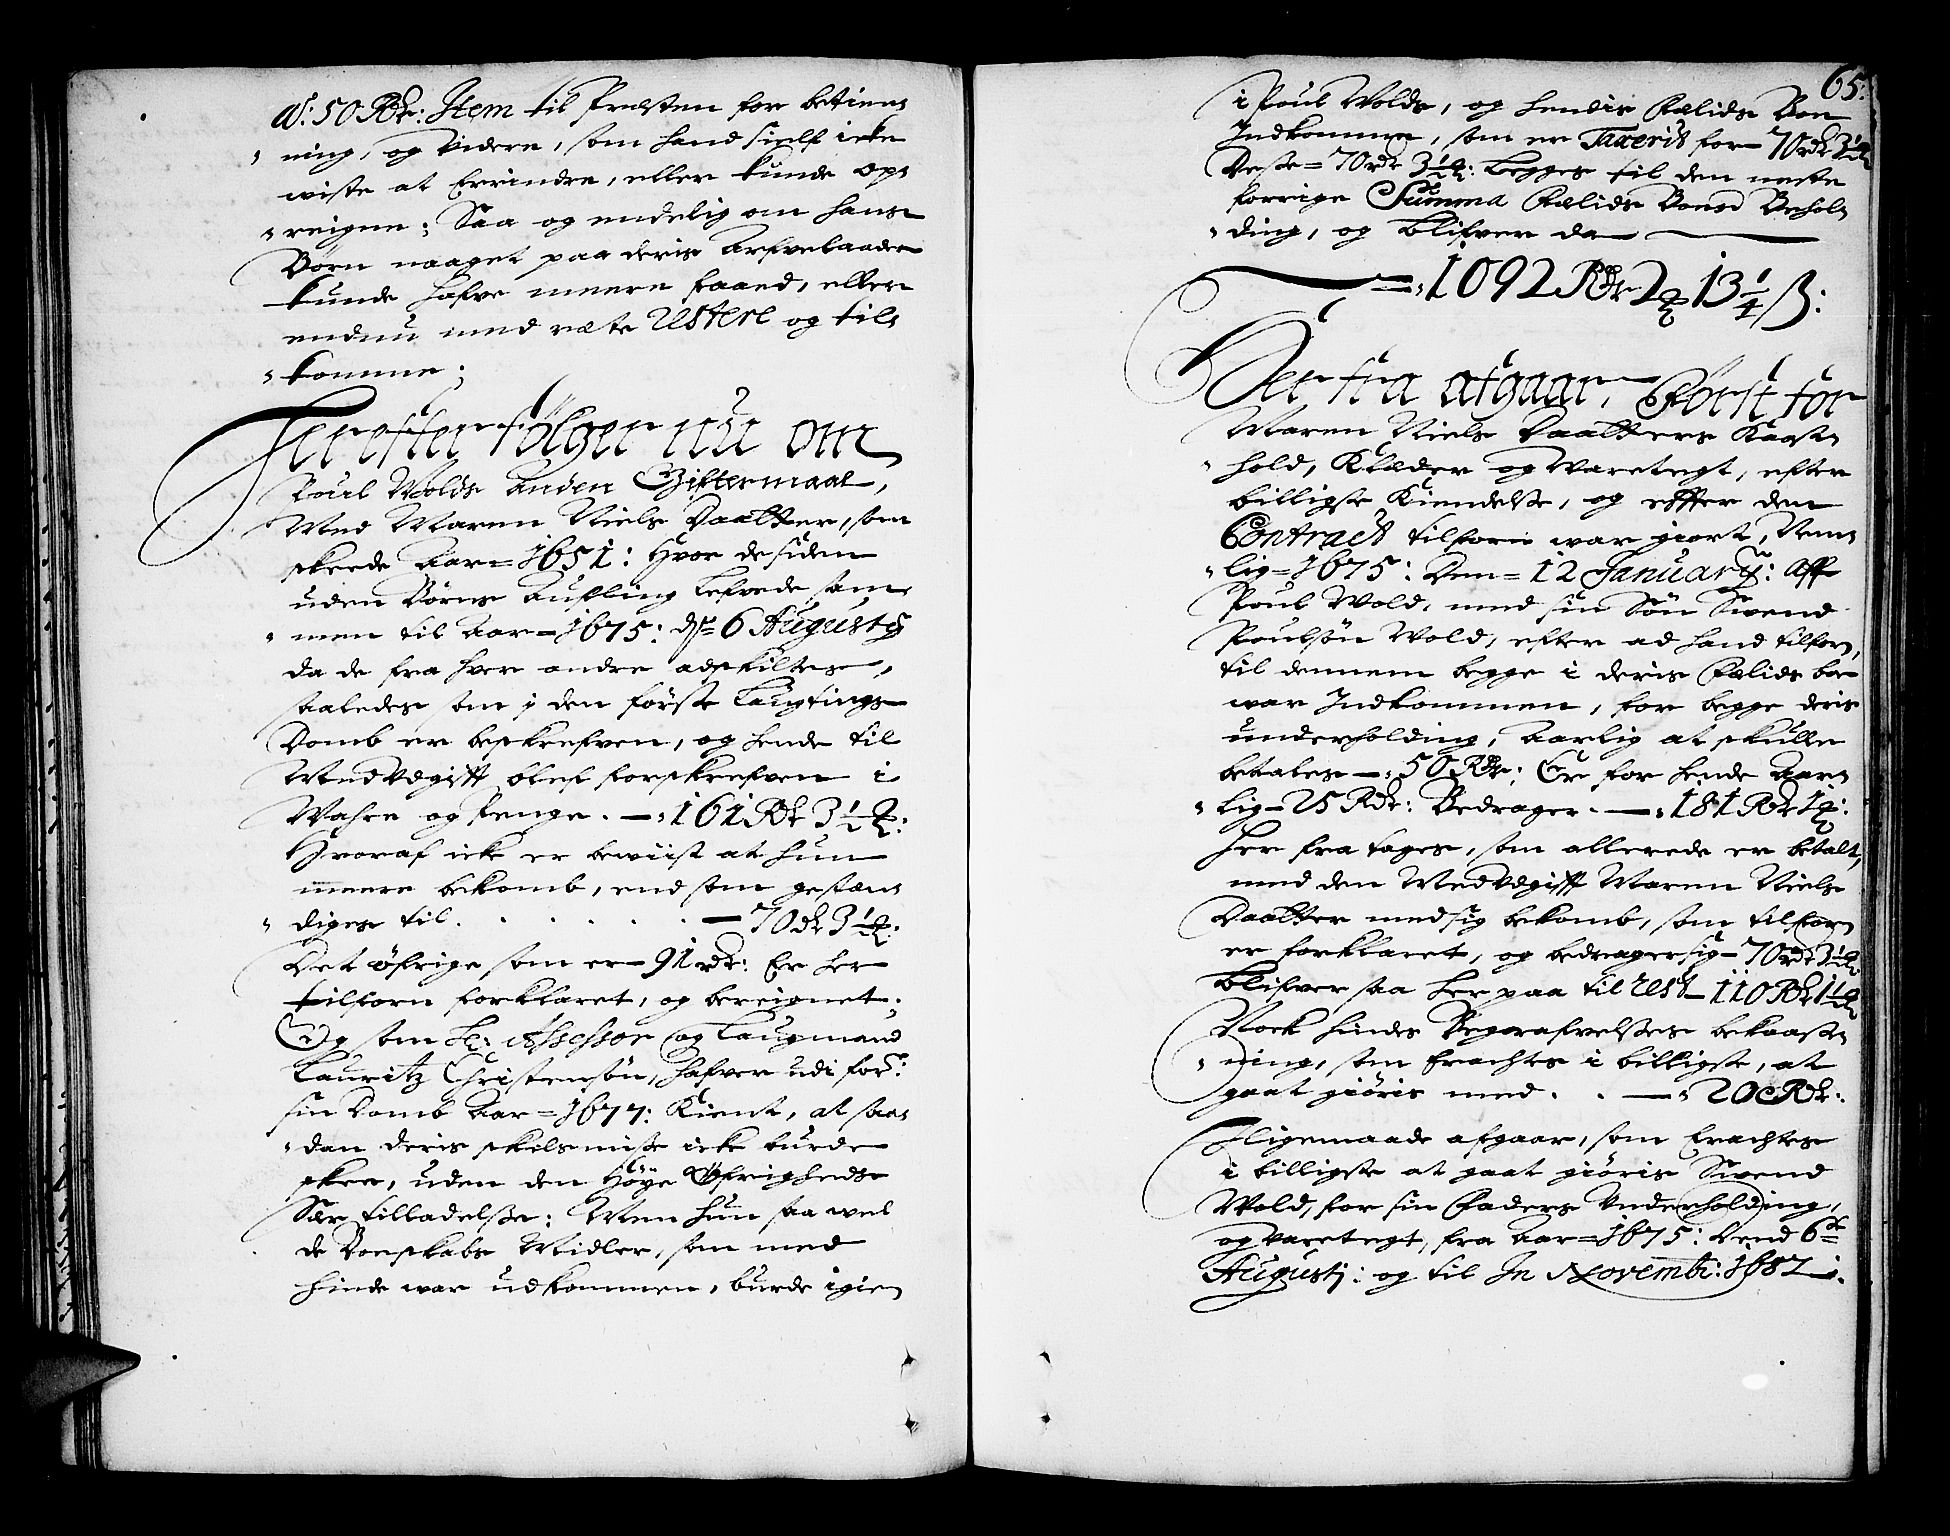 a/: 50 Rdr: Item til Præsten for betien„
„ning, og Videre, som hand sielf icke
wiste at Erindre, eller kunde op„
„reigne; Saa og endelig om hans
Børn naaget paa deris Arfvelaader
kunde hafve meere faaed, eller
endnu med rætte Restere og til„
„komme;
Herefter følger nu om
Poul Wolds Anden Giftermaal,
Med Maren Niels Daatter, som
skeede Aar= 1651: Hvor de siden
uden Børns Aufling lefvede sam„
„men til Aar= 1675: dn 6 Augustij
da de fra hver andre adskiltes,
saaledes som i den første Laugtings
Domb er beskrefven, og hende til
Medvdgifft blef forskrefven i
Wahre og Penge. —: 161 Rdr 3½ ℔:
Hvoraf icke er bewiist at hun
meere bekomb, end som gestæn„
„diges til. . . . . . — 70 dr 3½ ℔:
Det øfrige som er= 91 rdr: Er her
tilforn forklaret, og bereignet;
Og som Sl: Assessor og Laugmand
Lauritz Christensøn, hafver udi for:
sin Domb Aar= 1677: Kient, at saa„
„dan deris skilsmiße icke burde
skee, uden den Høye Øfrigheds
Sær tilladelße; Men hun saa vel
de Boeskabs Midler, som med
hinde war udkommen, burde igien
65:
i Poul Wolds, og hendis Fælids Boe
Indkomme, som er Taxerit for= 70 rdr 3½ ℔
Deße= 70 rdr 3½ ℔: Legges til den neste
forrige Summa Fælids Boens Behol„
„ding, og blifver da —
—=: 1092 Rdr 2 ℔ 13¼ ß:
Her fra afgaar, Først for
Maren Niels Daatters Kaast„
„hold, Klæder og Varetegt, efter
billigste Kiendelße, og effter den
Contract tilforn war giort, Nem„
„lig= 1675: Den= 12 January: Aff
Poul Wold, med sin Søn Swend
Poulsøn Wold, efter ad hand tilforn,
til dennem begge i deris Fælids boe
war Indkommen, for begge deris
underholding, Aarlig at skulle
betales —: 50 Rdr: Er for hende Aar„
„lig= 25 Rdr: Bedrager. —: 181 Rdr 1 ℔:
Her fra tages, som allerede er betalt,
med den Medvdgifft Maren Niels
Daatter med sig bekomb, som tilforn
er forklaret, og bedrager sig= 70 rdr 3½ ℔
Blifver saa her paa til Rest— 110 Rdr 1½ ℔
Nock hindes Begrafvelßes bekaast„
„ning, som Erachtes i billigste, at
gaat giøris med. . —: 20 Rdr:
Ligemaade afgaar, som Erachtes
i billigste at gaat giøris Swend
Wold, for sin Faders Underholding,
og varetegt, fra Aar= 1675: Dend 6te
Augustj: og til In Novemb: 1682: